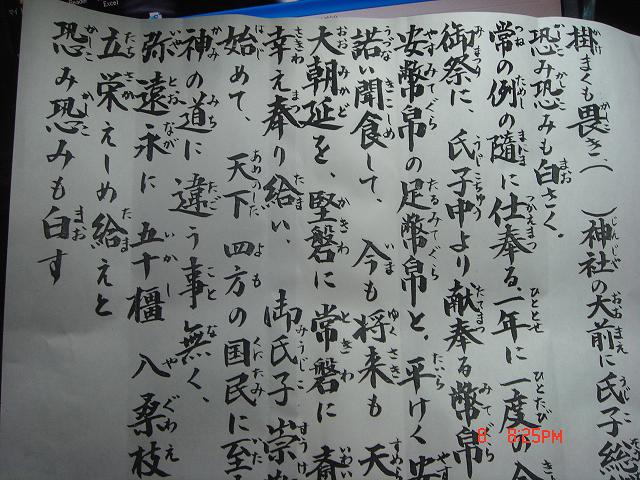 掛まくも畏き（　）神社の大前に氏子総
恐み恐みも白さく。
常の例の隨に仕奉る、一年に一度の今
御祭に、氏子中より献奉る幣帛
安幣帛の足幣帛と、平けく安
諾い聞食して、今も将来も天
大朝廷を、堅磐に常磐に斎
幸え奉り給い、御氏子崇
始めて、天下四方の国民に至
神の道に違う事無く、
弥遠永に五十橿八桑枝
立栄えしめ給えと
恐み恐みも白す
Excel
8 8:25PM